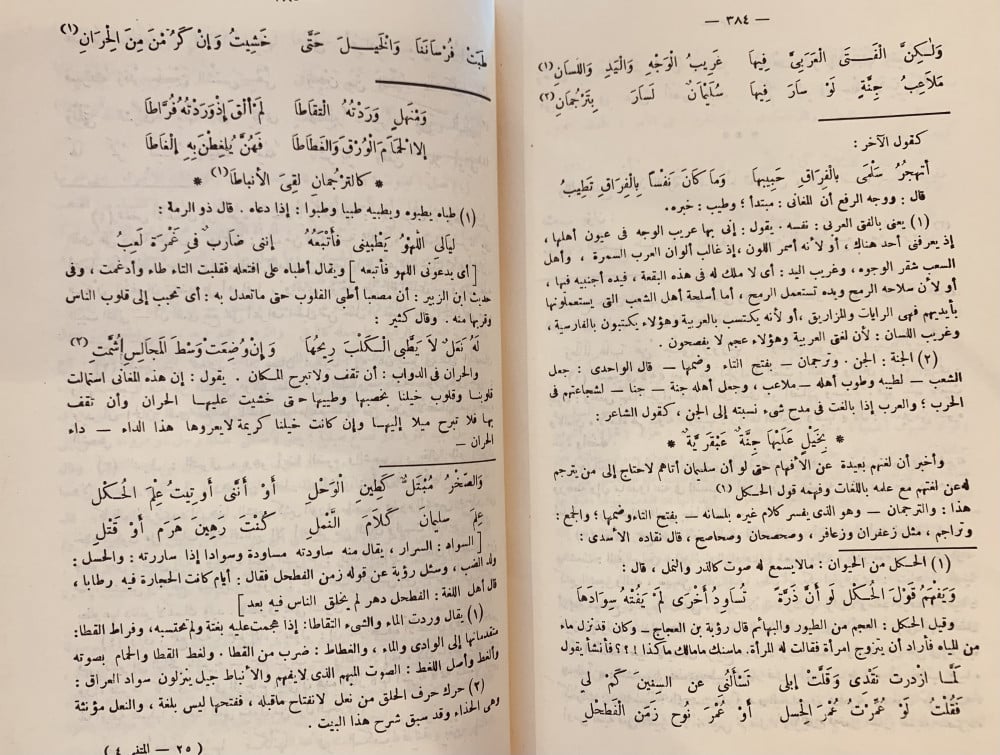 — ٣٨٤ —
وَلٰكِنَّ الْفَتَى الْعَرَبِيَّ فِيهَا غَرِيبُ الْوَجْهِ وَالْيَدِ وَاللسَانِ (١)
مَلَاعِبُ جِنَّةٍ لَوْ سَارَ فِيهَا سُلَيْمَانٌ لَسَارَ بِتَرْجُمَانِ (٢)
كقول الآخر :
أَتَهْجُرُ سَلْمَى بِالْفِرَاقِ حَبِيبَهَا وَمَا كَانَ نَفْسًا بِالْفِرَاقِ تَطِيبُ
قال : ووجه الرفع أن للغانى : مبتدأ ؛ وطيب : خبره .
(١) يعنى بالفتى العربى : نفسه . يقول : إنى بها غريب الوجه فى عيون أهلها ،
إذ يعرفنى أحد هناك ، أو لأنه أسمر اللون ، إذ غالب ألوان العرب السمرة ، وأهل
السعب شقر الوجوه ، وغريب اليد : أى لا ملك له فى هذه البقعة ، فيده أجنبيه فيها ،
أو لأن سلاحه الرمح ويده تستعمل الرمح ، أما أسلحة أهل الشعب التى يستعملونها
بأيديهم فهى الرايات والمزاريق ، أو لأنه يكتسب بالعربية وهؤلاء يكتبون بالفارسية ،
وغريب اللسان : لأن لغتى العربية وهؤلاء عجم لا يفصحون .
(٢) الجنة : الجن . وترجمان — بفتح التاء وضمها — قال الواحدى : جعل
الشعب — لطيبه وطوب أهله — ملاعب ، وجعل أهله جنة — جنا — لشجاعتهم فى
الحرب ؛ والعرب إذا بالغت فى مدح شىء نسبته إلى الجن ، كقول الشاعر :
* بِخَيْلٍ عَلَيْهَا جِنَّةٌ عَبْقَرِيَّةٌ *
وأخبر أن لغتهم بعيدة عن الأفهام حتى لو أن سليمان أتاهم لاحتاج إلى من يترجم
له عن لغتهم مع علمه باللغات وفهمه قول الحسكل (١)
هذا : والترجمان — وهو الذى يفسر كلام غيره بلسانه — بفتح التاء وضمها ؛ والجمع :
وتراجم ، مثل زعفران وزعافر ، وصحصحان وصحاصح ، قال نقاده الأسدى :
(١) الحسكل من الحيوان : مالايسمع له صوت كالذر والنمل ، قال :
وَيَفْهَمُ قَوْلَ الْحُسْكْلِ لَوْ أَنَّ ذَرَّةً تُسَاوِدُ أُخْرَى لَمْ يَفُتْهُ سِوَادُهَا
وقيل الحكل : العجم من الطيور والبهائم قال رؤبة بن العجاج — وكان قد نزل ماء
من المياه فأراد أن يتزوج امرأة فقالت له المرأة . ماسنك مامالك ماكذا ! ؟ ؟ فأنشأ يقول
لَمَّا ازْدَرَتْ نَقْدِى وَقَلَّتْ إِبِلِى تَسْأَلُنِي عَنِ السِّنِينَ كَمْ لِي
فَقُلْتُ لَوْ عُمِّرْتُ عُمْرَ الْحِسْلِ أَوْ عُمْرَ نُوحٍ زَمَنَ الْفَطَحْلِ
طَبَتْ فُرْسَانَنَا وَالْخَيْلَ حَتَّى خَشِيتُ وَإِنْ كَرُمْنَ مِنَ الْحِرَانِ (١)
وَمَنْهَلٍ وَرَدْتُهُ الْتِقَاطَا لَمْ أَلْقَ إِذْ وَرَدْتُهُ فُرَّاطَا
إلا الْحَمَامَ الْوُرْقَ وَالْغَطَاطَا فَهُنَّ يُلْغِطْنَ بِهِ إِلْغَاطَا
* كالتُّرْجُمانِ لَقِىَ الأنباطَا (١) *
(١) طباه يطبوه ويطبيه طبيا وطبوا : إذا دعاه . قال ذو الرمة :
لَيَالِىَ اللَّهْوُ يَطْبِينِى فَأَتْبَعُهُ إننى ضَارِبٌ فِى غَمْرَةٍ لَعِبُ
[ أى يدعونى اللهو فأتبعه ] ويقال أطباه على افتعله فقلبت التاء طاء وأدغمت ، وفى
حديث ابن الزبير : أن مصعبا أطبى القلوب حتى ماتعدل به : أى تحبب إلى قلوب الناس
وقربها منه . وقال كثير :
لَهُ نَعَلٌ لَا يَطَّبِى الْكَلْبَ رِيحُهَا وَإِنْ وُضِعَتْ وَسْطَ الْمَجَالِسِ أُشُمَّتِ (٢)
والحران فى الدواب : أن تقف ولاتبرح المكان . يقول : إن هذه المغانى استمالت
قلوبنا وقلوب خيلنا بخصبها وطيبها حتى خشيت عليها الحران وأن تقف
بها فلا تبرح ميلا إليها وإن كانت خيلنا كريمة لايعروها هذا الداء — داء
الحران —
وَالصَّخْرُ مُبْتَلٌّ كَطِينِ الْوَحْلِ أَوْ أَنَّنِى أُوتِيتُ عِلْمَ الْحُسْكْلِ
عِلْمَ سليمانَ كَلَامَ النَّمْلِ كُنْتُ رَهِينَ هَرَمٍ أَوْ قَتْلِ
[ السواد : السرار ، يقال منه ساودته مساودة وسوادا إذا ساررته : والحسل :
ولد الضب ، وسئل رؤبة عن قوله زمن الفطحل فقال : أيام كانت الحجارة فيه رطابا ،
قال أهل اللغة : الفطحل دهر لم يخلق الناس فيه بعد ]
(١) يقال وردت الماء والشىء التقاطا : إذا هجمت عليه بغتة ولم تحتسبه، وفراط القطا:
متقدماتها إلى الوادى والماء ، والغطاط : ضرب من القطا . ولغط القطا والحمام بصوته
وألغط وأصل اللغط : الصوت المبهم الذى لايفهم والأنباط جيل ينزلون سواد العراق :
(٢) حرك حرف الحلق من نعل لانفتاح ماقبله ، ففتحها ليس بلغة ، والنعل مؤنثة
وهى الحذاء وقد سبق شرح هذا البيت .
( ٢٥ — المتنبى ٤ )